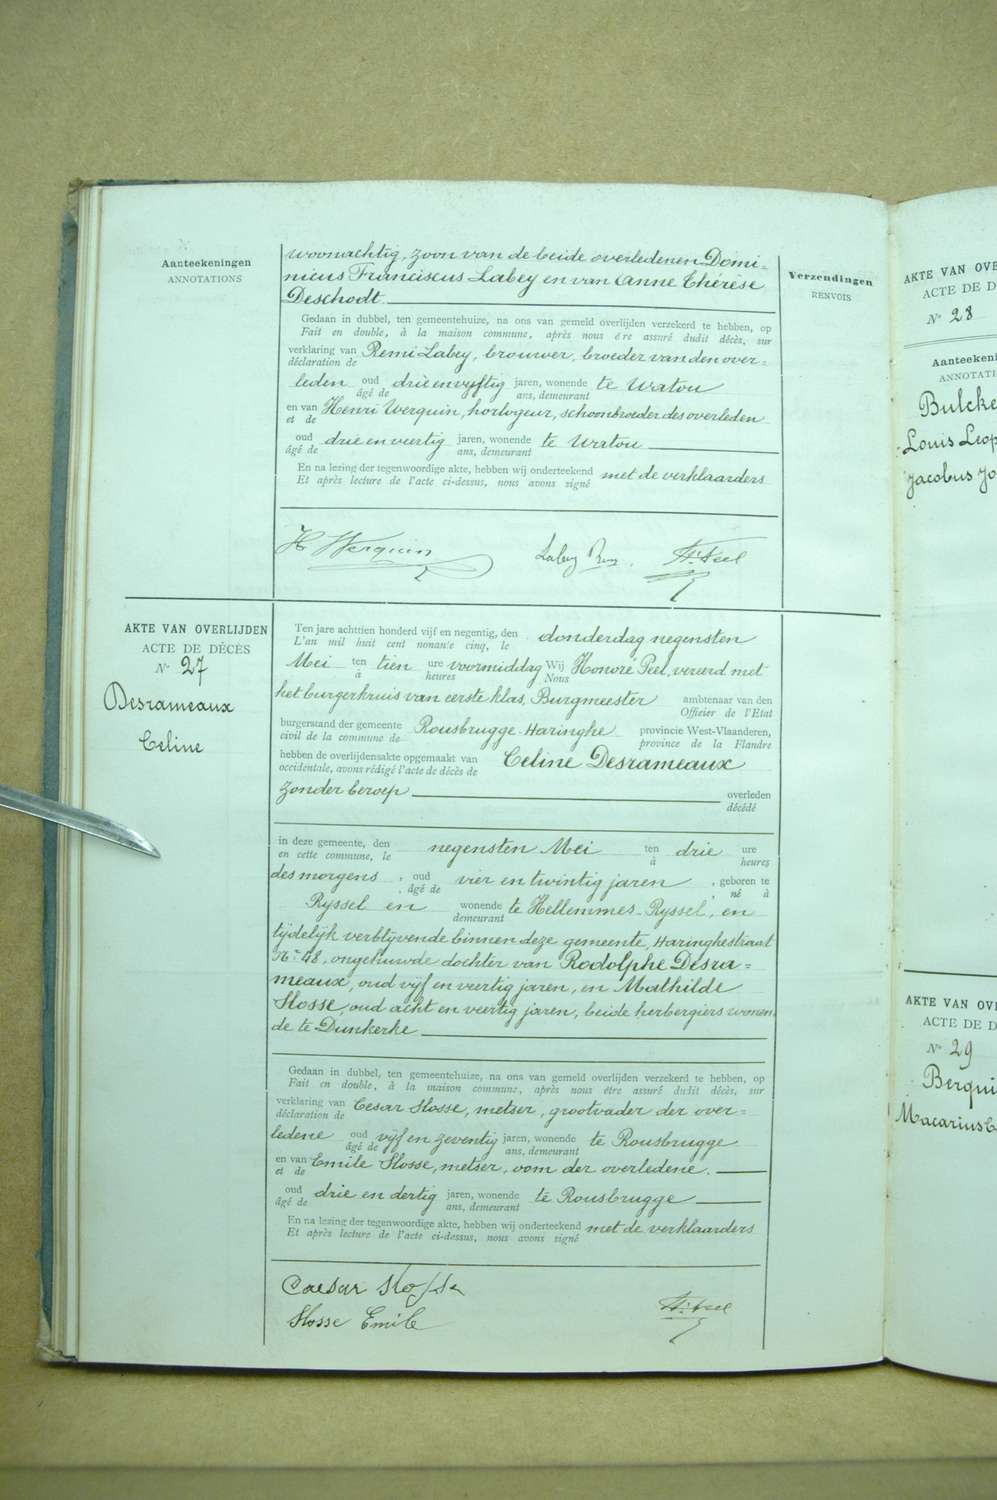 Aanteekeningen
ANNOTATIONS
woonachtig, zoon van de beide overledenen Domi=
nicus Franciscus Labey en van Anne Thérèse
Deschodt
Verzendingen
RENVOIS
Gedaan in dubbel, ten gemeentehuize, na ons van gemeld overlijden verzekerd te hebben, op
Fait en double, à la maison commune, après nous être assuré dudit décès, sur
verklaring van Remi Labey, brouwer, broeder van den over=
déclaration de
leden oud drie en vyftig jaren, wonende te Watou
âgé de ans, demeurant
en van Henri Werquin, horlogeur, schoonbroeder des overleden
et de
oud drie en veertig jaren, wonende te Watou
âgé de ans, demeurant
En na lezing der tegenwoordige akte, hebben wij onderteekend met de verklaarders
Et après lecture de l'acte ci-dessus, nous avons signé
H Werquin Labey Remi. H. Peel
AKTE VAN OVERLIJDEN
ACTE DE DÉCÈS
N° 27
Desrameaux
Celine
Ten jare achttien honderd vijf en negentig, den donderdag negensten
L'an mil huit cent nonante cinq, le
Mei ten tien ure voormiddag Wij Honoré Peel, vereerd met
à heures Nous
het burgerkruis van eerste klas, Burgmeester ambtenaar van den
Officier de l'Etat
burgerstand der gemeente Rousbrugge-Haringhe provincie West-Vlaanderen,
civil de la commune de province de la Flandre
hebben de overlijdensakte opgemaakt van Celine Desrameaux
occidentale, avons rédigé l'acte de décès de
zonder beroep overleden
décédé
in deze gemeente, den negensten Mei ten drie ure
en cette commune, le à heures
des morgens, oud vier en twintig jaren, geboren te
âgé de né à
Ryssel en wonende te Hellemmes-Ryssel, en
demeurant
tijdelijk verblyvende binnen deze gemeente, Haringhestraat
N° 48, ongehuwde dochter van Rodolphe Desra=
meaux, oud vijf en veertig jaren, en Mathilde
Slosse, oud acht en veertig jaren, beide herbergiers wonen
de te Dunkerke
Gedaan in dubbel, ten gemeentehuize, na ons van gemeld overlijden verzekerd te hebben, op
Fait en double, à la maison commune, après nous être assuré dudit décès, sur
verklaring van Cesar Slosse, metser, grootvader der over=
déclaration de
ledene oud vijf en zeventig jaren, wonende te Rousbrugge
âgé de ans, demeurant
en van Emile Slosse, metser, oom der overledene.
et de
oud drie en dertig jaren, wonende te Rousbrugge
âgé de ans, demeurant
En na lezing der tegenwoordige akte, hebben wij onderteekend met de verklaarders
Et après lecture de l'acte ci-dessus, nous avons signé
Caesar Slosse
Slosse Emile H. Peel
AKTE VAN OVE
ACTE DE D
N° 28
Aanteekeni
ANNOTATI
Bulcke
Louis Leop
Jacobus Jo
AKTE VAN OV
ACTE DE D
N° 29
Berqui
Macarius C